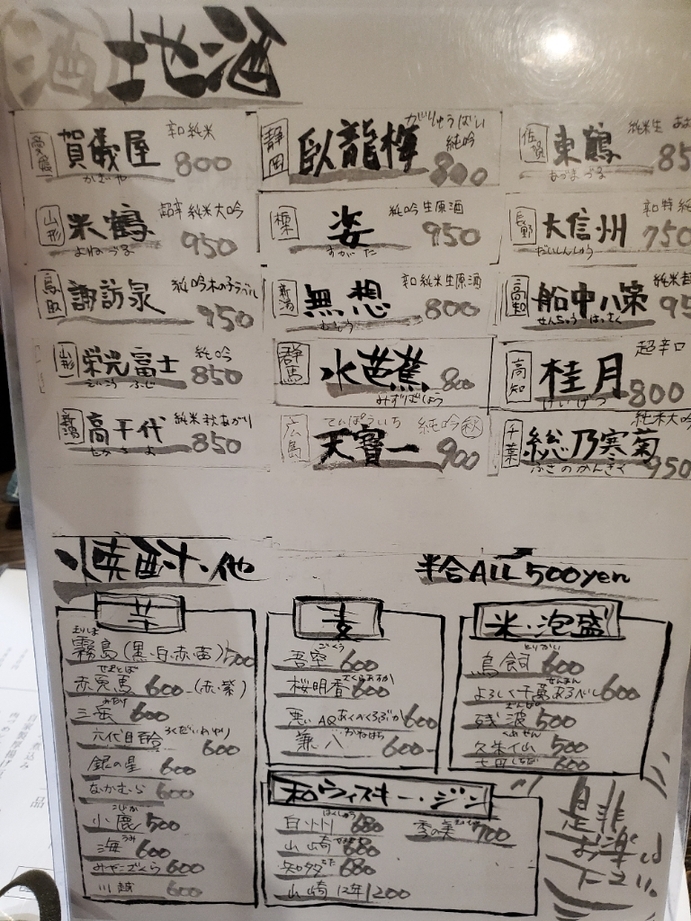 地酒
愛媛 賀儀屋 辛口純米 800
かぎや
静岡 臥龍梅 がりゅうばい 純吟 800
佐賀 東鶴 純米生 85
あずまづる
山形 米鶴 超辛純米大吟 950
よねづる
栃 姿 純吟生原酒 950
すがた
長野 大信州 辛口特純 750
だいしんしゅう
鳥取 諏訪泉 純吟木の子ラベル 950
新潟 無想 辛口純米生原酒 800
むそう
高知 船中八策 純米超 95
せんちゅうはっさく
山形 栄光冨士 純吟 850
えいこうふじ
群馬 水芭蕉 800
みずばしょう
高知 桂月 超辛口 800
けいげつ
新潟 高千代 純米秋あがり 850
たかちよ
広島 天寶一 てんぽういち 純吟 秋 900
千葉 総乃寒菊 純米大吟 950
ふさのかんぎく
焼酎・他
半合ALL 500yen
芋
霧島(黒・白・赤・茜) 500
赤兎馬 600 (赤・紫)
三岳 600
六代目 600
銀の星 600
なかむら 600
小鹿 500
海 600
みやこざくら 600
川越 600
麦
吾空 600
桜明香 さくらあすか 600
悪いAQ 600
兼八 かねはち 600
米・泡盛
鳥飼 とりかい 600
よろしく千萬あるべし 600
残波 500
久米仙 500
七田 600
和ウィスキー・ジン
白州 680
雪の美 700
山崎 680
知多 680
山崎12年 1200
是非
お楽し
下さい。